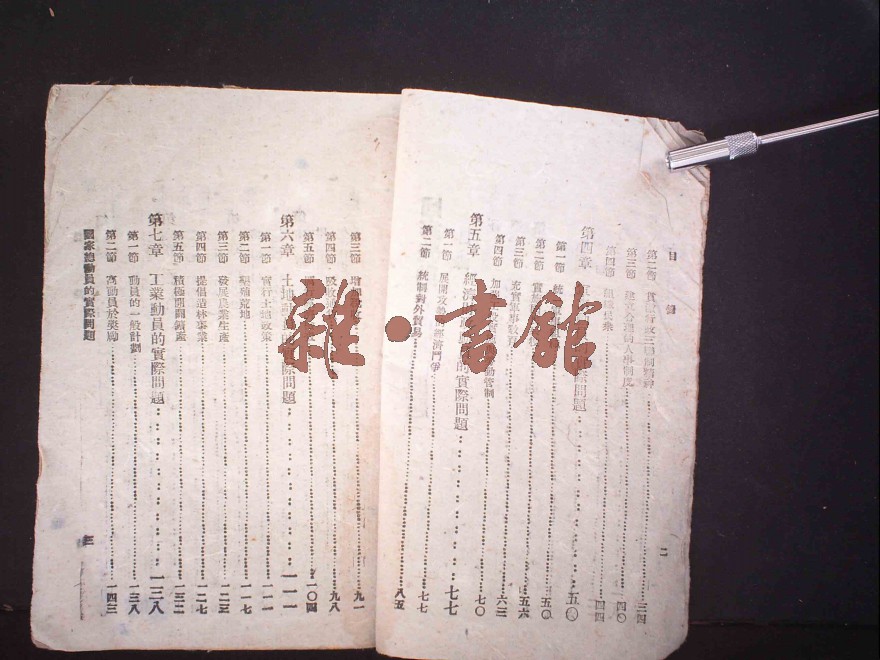 目錄
第二節 實行行政三聯制精神 三四
第三節 建立合理的人事制度 四〇
第四節 四四
第四章 實際問題 五〇
第一節 統 五〇
第二節 實 五六
第三節 充實軍事教育 六三
第四節 加強 動管制 七〇
第五章 經濟 的實際問題 七七
第一節 展開攻 經濟鬥爭 七七
第二節 統制對外貿易 八五
二
第三節 增 九一
第四節 吸收 九八
第五節 一〇四
第六章 土地 的實際問題 一一一
第一節 實行土地政策 一一一
第二節 墾殖荒地 一一七
第三節 發展農業生產 一二五
第四節 提倡造林事業 一二七
第五節 積極開闢礦產 一三二
第七章 工業動員的實際問題 一三八
第一節 動員的一般計劃 一三八
第二節 寓動員於獎勵 一四三
國家總動員的實際問題
三
雜·書館